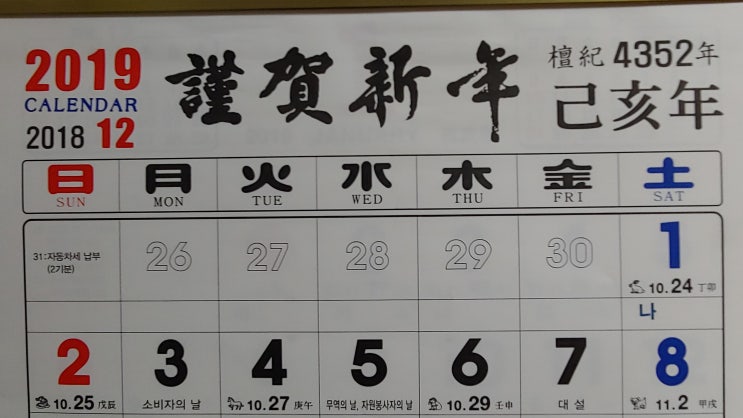 2019 謹賀新年 檀紀 4352年
CALENDAR 己亥年
2018 12
日 月 火 水 木 金 土
SUN MON TUE WED THU FRI SAT
31:자동차세 납부 26 27 28 29 30 1
(2기분)
10.24 丁卯
나
2 3 4 5 6 7 8
10.25 戊辰 소비자의 날 10.27 庚午 무역의 날, 자원봉사자의 날 10.29 壬申 대 설 11.2 甲戌